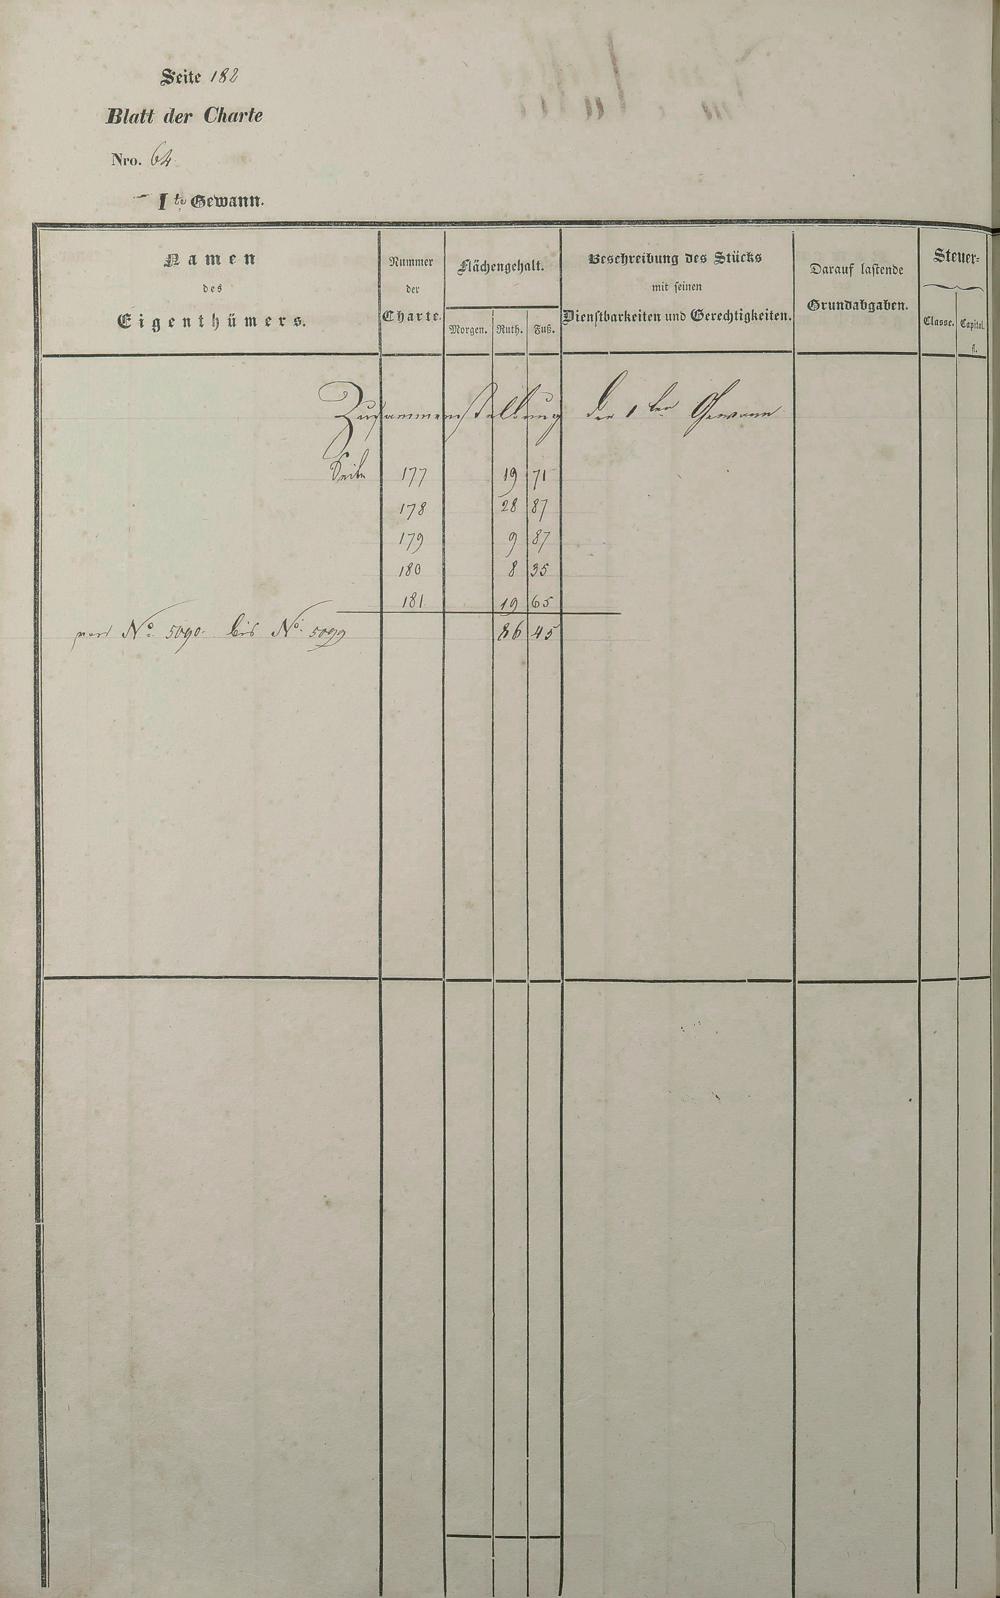 Seite 182
Blatt der Charte
Nro. 64
I te Gewann.
Namen
des
Eigenthümers.
Nummer
der
Charte.
Flächengehalt.
Morgen. Ruth. Fuß.
Beschreibung des Stücks
mit seinen
Dienstbarkeiten und Gerechtigkeiten.
Darauf lastende
Grundabgaben.
Steuer-
Classe. Capital.
fl.
Zusammenstellung der 1 ten Gewann
Seite 177 19 71
178 28 87
179 9 87
180 8 35
181 19 65
von No. 5090. bis No. 5099 86 45